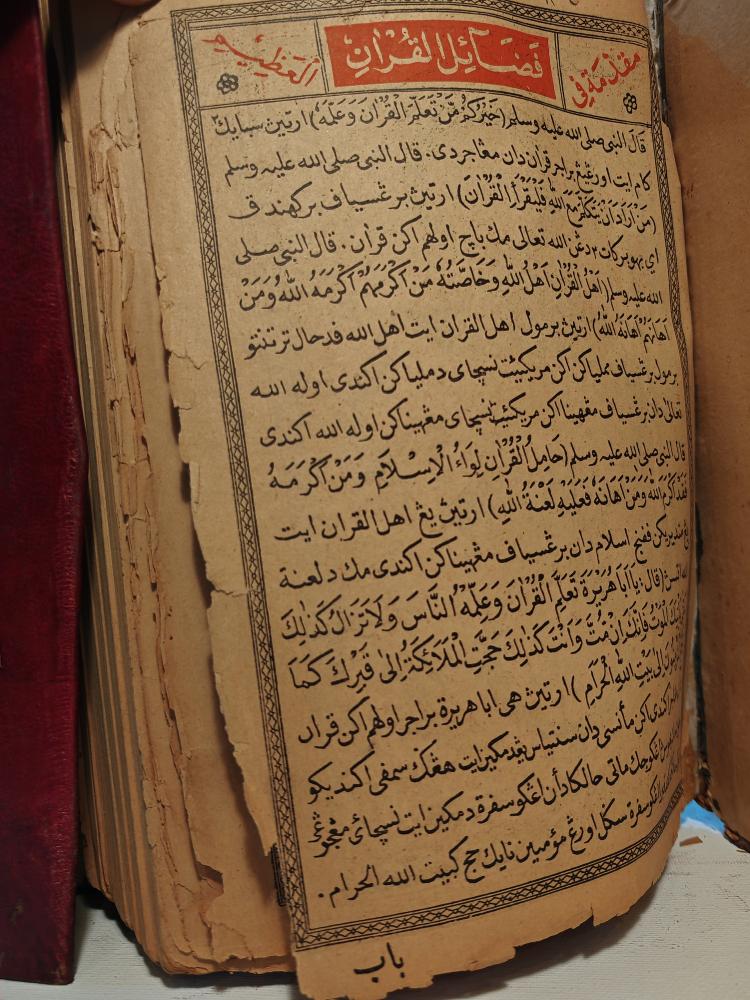 مقدمة في فضآئل القرآن العظيم
قال النبي صلى الله عليه وسلم (خَيْرُكُمْ مَّنْ تَعَلَّمَ الْقُرْاٰنَ وَعَلَّمَهُ) ارتيڽ سبايك٢
كام ايت اورڠ يڠ براجر قرأن دان مڠاجردي. قال النبي صلى الله عليه وسلم
(مَنْ اَرَادَ اَنْ يَتَكَلَّمَ مَعَ اللهِ فَلْيَقْرَأِ الْقُرْاٰنَ) ارتيڽ برڠسياف بركهندق
اي بهو بركات٢ دڠن الله تعالى مك باچ اولهم اكن قرأن. قال النبي صلى
الله عليه وسلم (اَهْلُ الْقُرْاٰنِ اَهْلُ اللهِ وَخَاصَّتُهُ مَنْ اَكْرَمَهُمْ اَكْرَمَهُ اللهُ وَمَنْ
اَهَانَهُمْ اَهَانَهُ اللهُ) ارتيڽ برمول اهل القران ايت اهل الله فدحال ترتنتو
برمول برڠسياف مملياكن اكن مريكئيت نسچاى دملياكن اكندى اوله الله
تعالى دان برڠسياف مڠهيناكن مريكئيت نسچاى مڠهيناكن اوله الله اكندى
قال النبي صلى الله عليه وسلم (حَامِلُ الْقُرْاٰنِ لِوَاءُ الْاِسْلَامِ وَمَنْ اَكْرَمَهُ
فَقَدْ اَكْرَمَ اللهَ وَمَنْ اَهَانَهُ فَعَلَيْهِ لَعْنَةُ اللهِ) ارتيڽ يڠ اهل القران ايت
يڠ منديريكن فنجي اسلام دان برڠسياف مڠهيناكن اكندى مك د لعنة
(قال: يَا اَبَا هُرَيْرَةَ تَعَلَّمِ الْقُرْاٰنَ وَعَلِّمْهُ النَّاسَ وَلَا تَزَالُ كَذٰلِكَ
الْمَوْتُ فَاِنَّكَ اِنْ مُتَّ وَاَنْتَ كَذٰلِكَ حَجَّتِ الْمَلَائِكَةُ اِلٰى قَبْرِكَ كَمَا
اِلٰى بَيْتِ اللهِ الْحَرَامِ) ارتيڽ هى ابا هريرة براجر اولهم اكن قران
اكندى اكن مأنسى دان سنتياس يڠدمكين ايت هڠڬ سمفى اكنديكو
ماتى حالكادأن اڠكو سفرة دمكين ايت نسچاى
سفرة سڬل اورڠ مؤمنين نايك حج كبيت الله الحرام.
باب